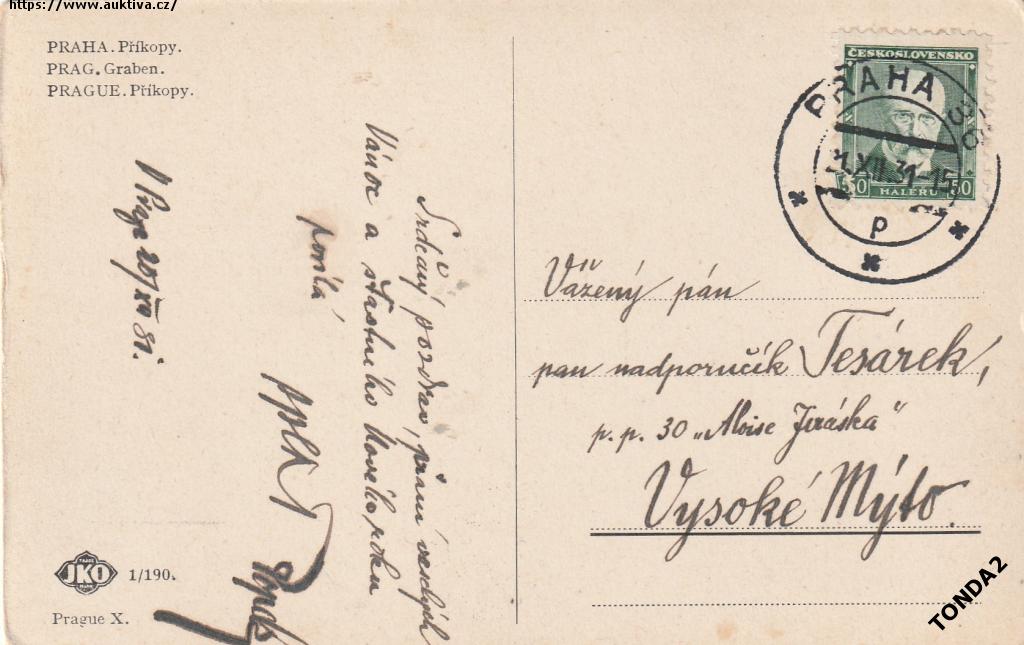 https://www.auktiva.cz/
PRAHA. Příkopy.
PRAG. Graben.
PRAGUE. Příkopy.
V Praze 20/XII 31.
Srdečný pozdrav, přání veselých
Vánoc a šťastného Nového roku
posílá
ČESKOSLOVENSKO
50 HALÉŘŮ 50
PRAHA 36
XII.31-15
p
Vážený pán
pan nadporučík Tesárek,
p.p. 30 „Aloise Jiráska"
Vysoké Mýto.
JKO
1/190.
Prague X.
TONDA2